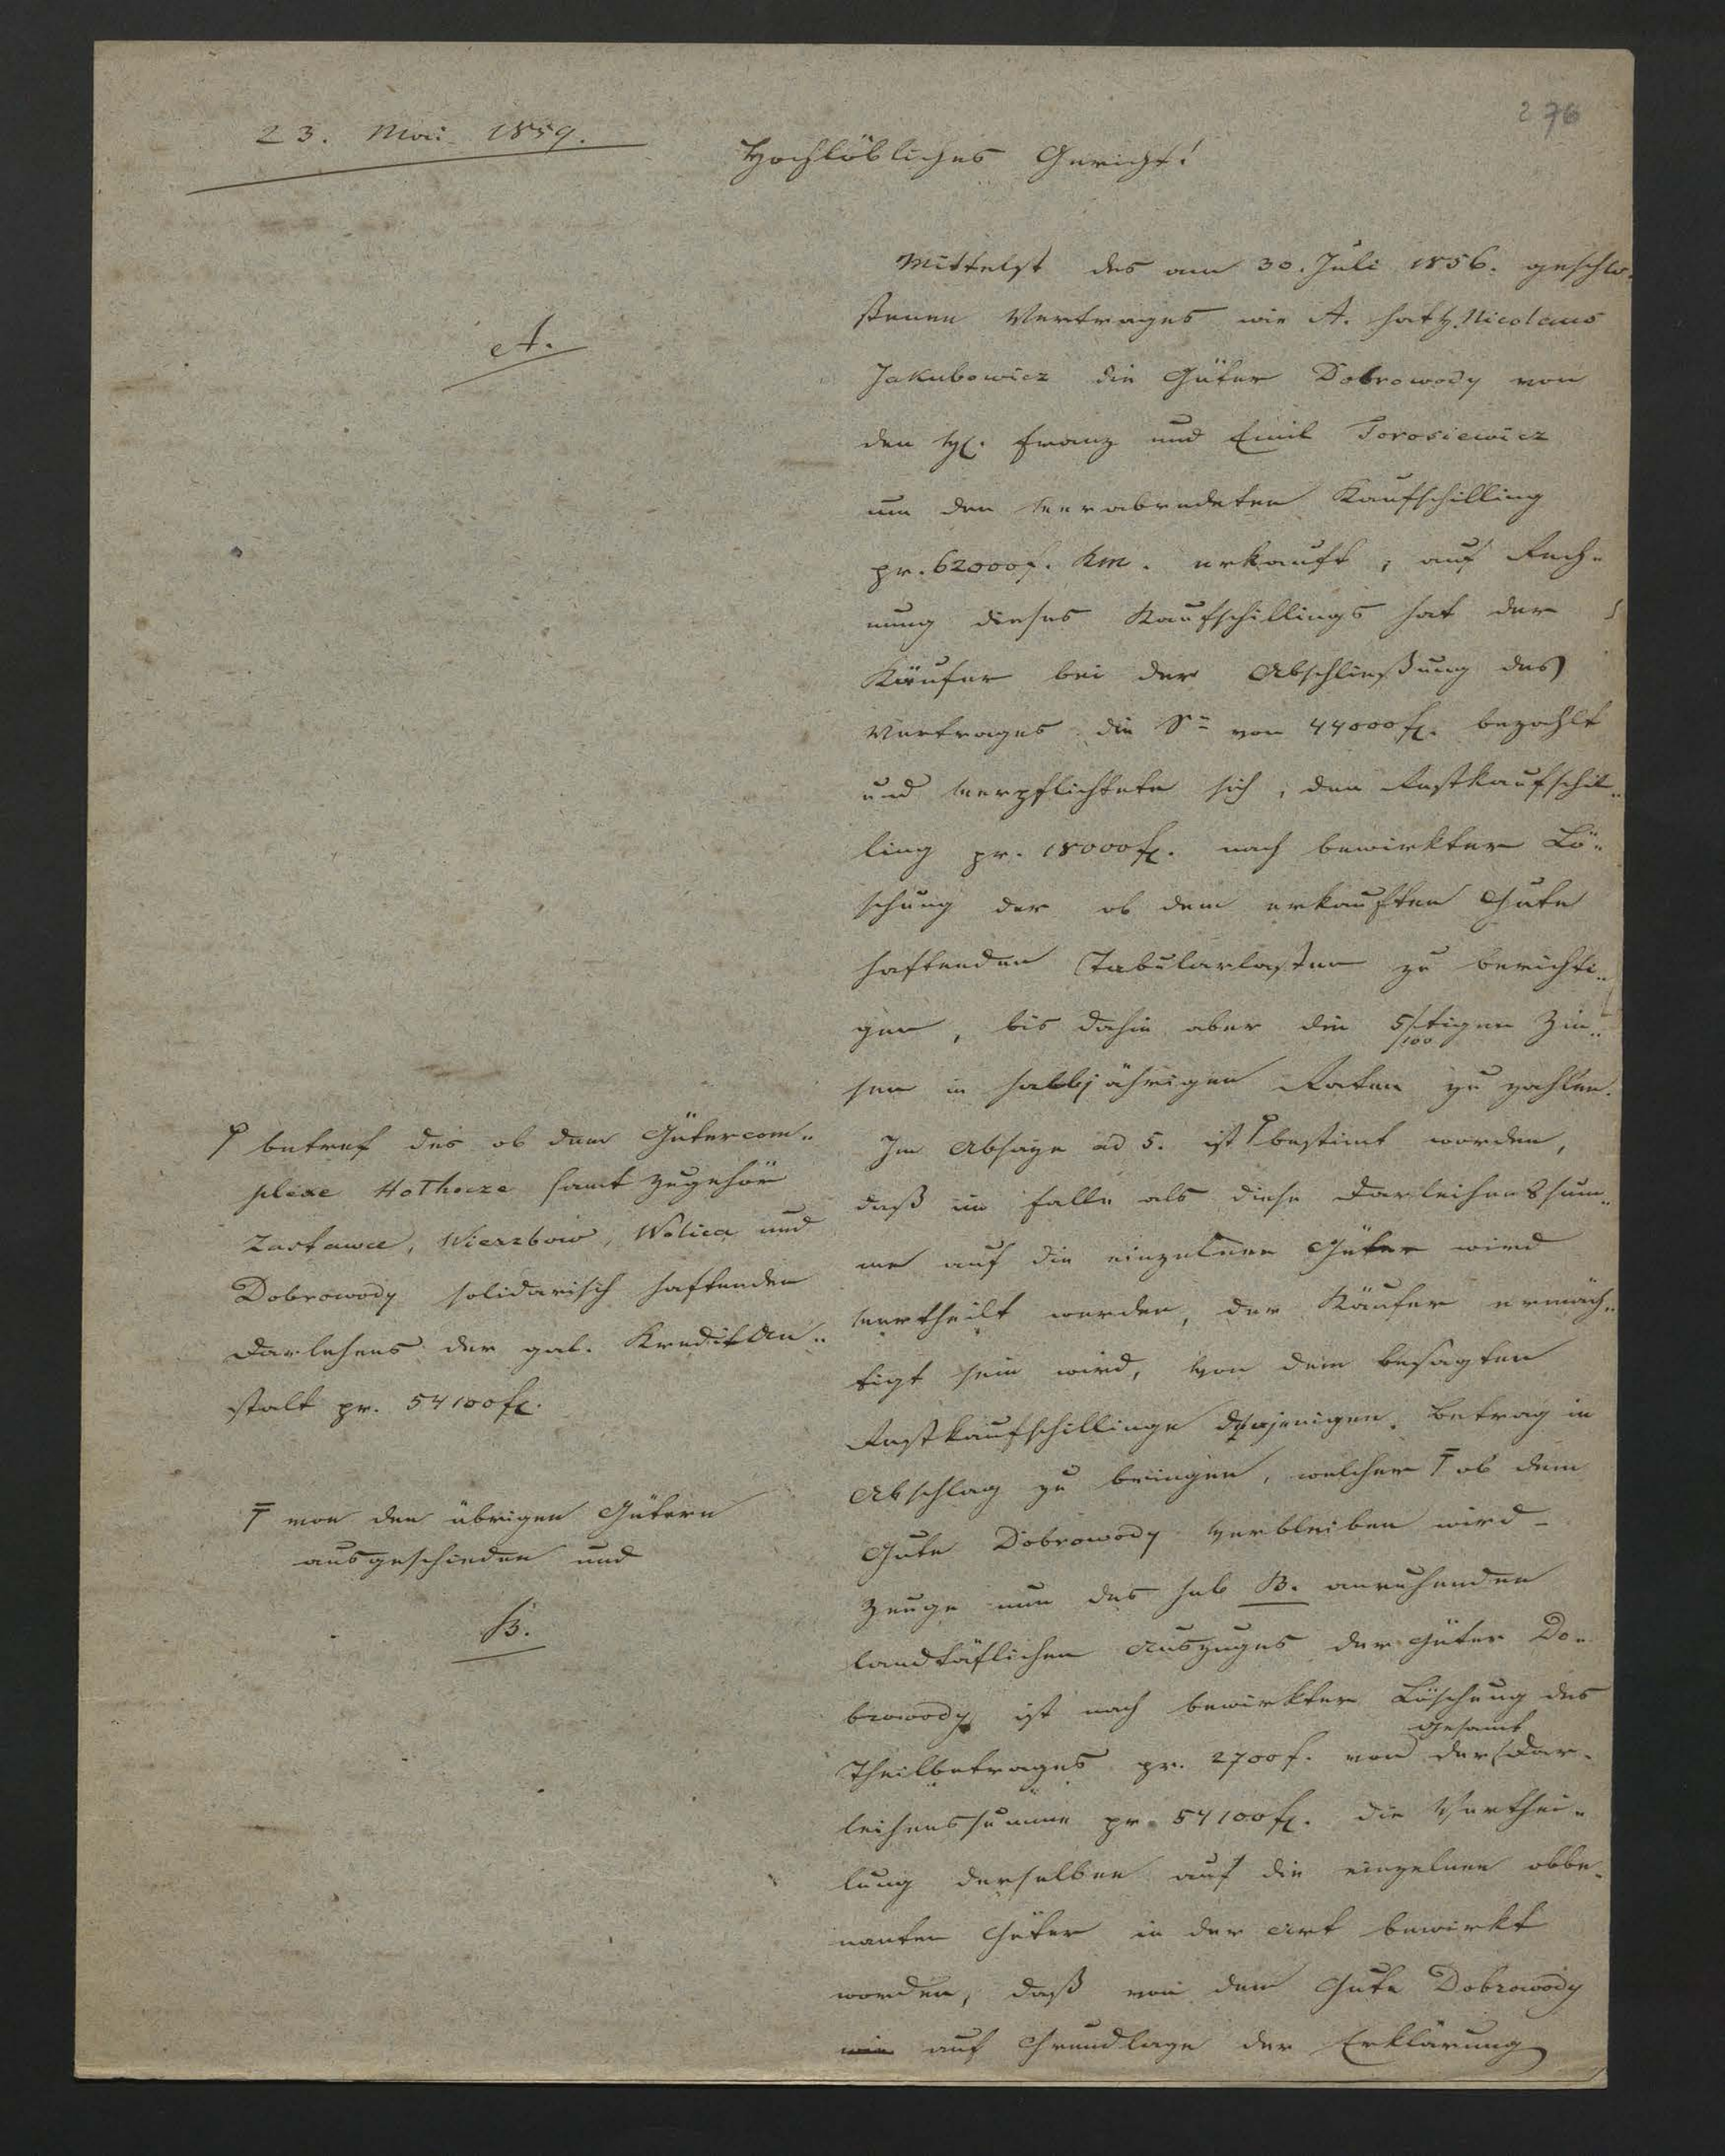 276
23. Mai 1859.
Hochlöbliches Gericht!
A.
Mittelst des am 30. Juli 1856. geschlo-
ssenen Vertrages wie A. hat H. Nicolaus
Jakubowicz die Güter Dobrowody von
den H. Franz und Emil Torosiewicz
um den verabredeten Kaufschilling
pr. 62000 f. Km. erkauft, auf Rech-
nung dieses Kaufschillings hat der
Käufer bei der Abschließung des
Vertrages die Se von 44000 fl. bezahlt
und verpflichtete sich, den Restkaufschil-
ling pr. 18000 fl. nach bewirkter Lö-
schung der ob dem erkauften Gute
haftenden Tabularlasten zu berichti-
gen, bis dahin aber die 5/100tigen Zin-
sen in halbjährigen Raten zu zahlen.
Im Absaze ad 5. ist bestimt worden,
daß im Falle als diese Darleihenssum-
me auf die einzelnen Güter wird
vertheilt werden, der Käufer ermäch-
tigt sein wird, von dem besagten
Restkaufschillinge denjenigen Betrag in
Abschlag zu bringen, welcher ob dem
Gute Dobrowody verbleiben wird –
Zeuge nun des sub B. anruhenden
landtäflichen Auszuges der Güter Do-
browody ist nach bewirkter Löschung des
Theilbetrages pr. 2700 f. von der Gesamt Dar-
leihenssumme pr. 54100 fl. die Verthei-
lung derselben auf die einzelnen obbe-
nanten Güter in der Art bewirkt
worden, daß von dem Gute Dobrowody
auf Grundlage der Erklärung
betref des ob dem Gütercom-
plexe Hołhocze samt Zugehör
Zastawce, Wierzbow, Wolica und
Dobrowody solidarisch haftenden
Darlehens der gal. Kredit An-
stalt pr. 54100 fl.
von den übrigen Gütern
ausgeschieden und
B.